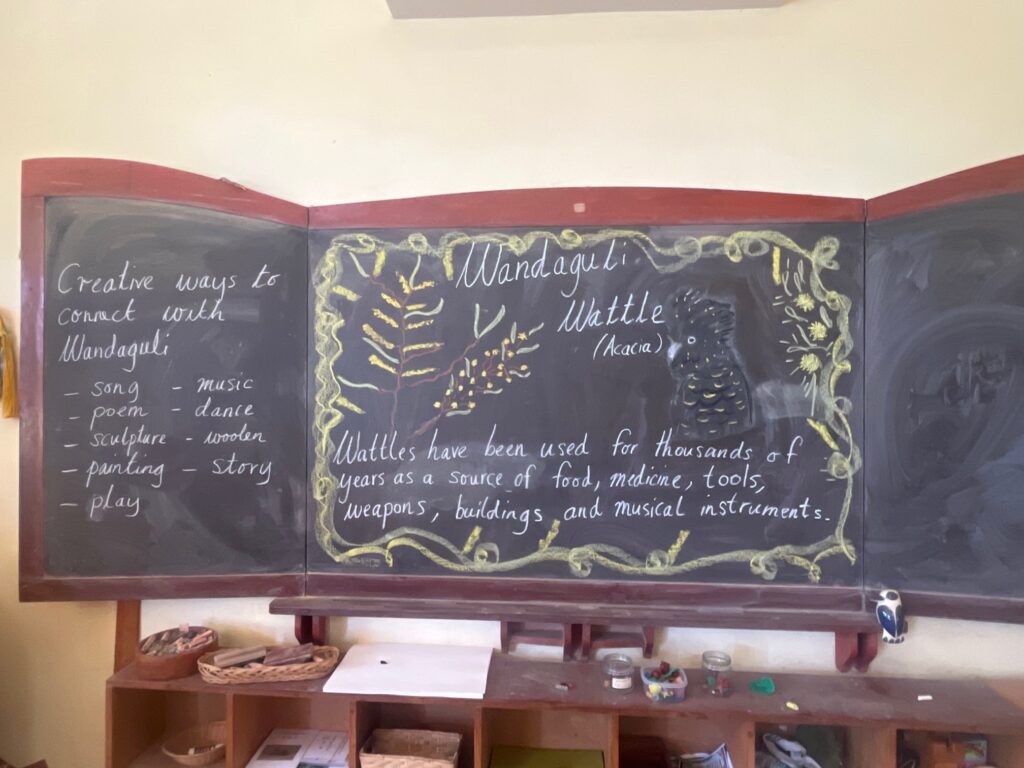 Creative ways to
connect with
Wandaguli
- song - music
- poem - dance
- sculpture - woolen
- painting - story
- play
Wandaguli
Wattle
(Acacia)
Wattles have been used for thousands of
years as a source of food, medicine, tools,
weapons, buildings and musical instruments.